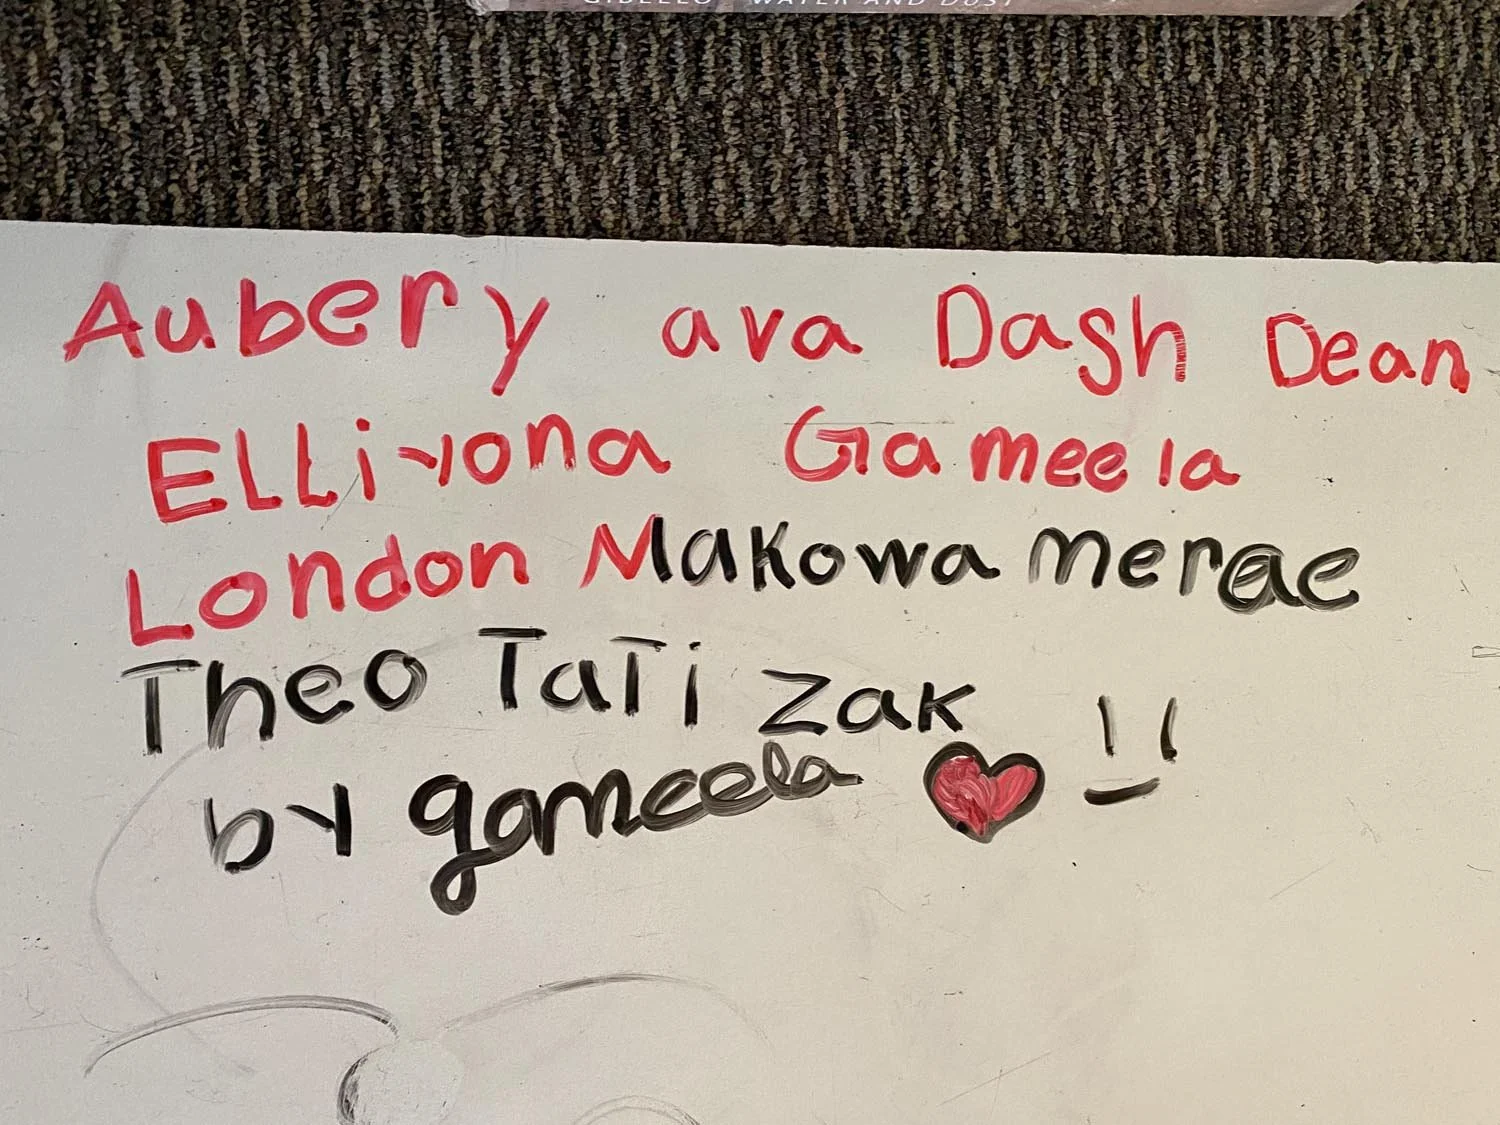 GIBELLO WATER AND DUST
Aubery ava Dash Dean
ELLiyona Gameela
London Makowa merae
Theo TaTi zak
by gameela